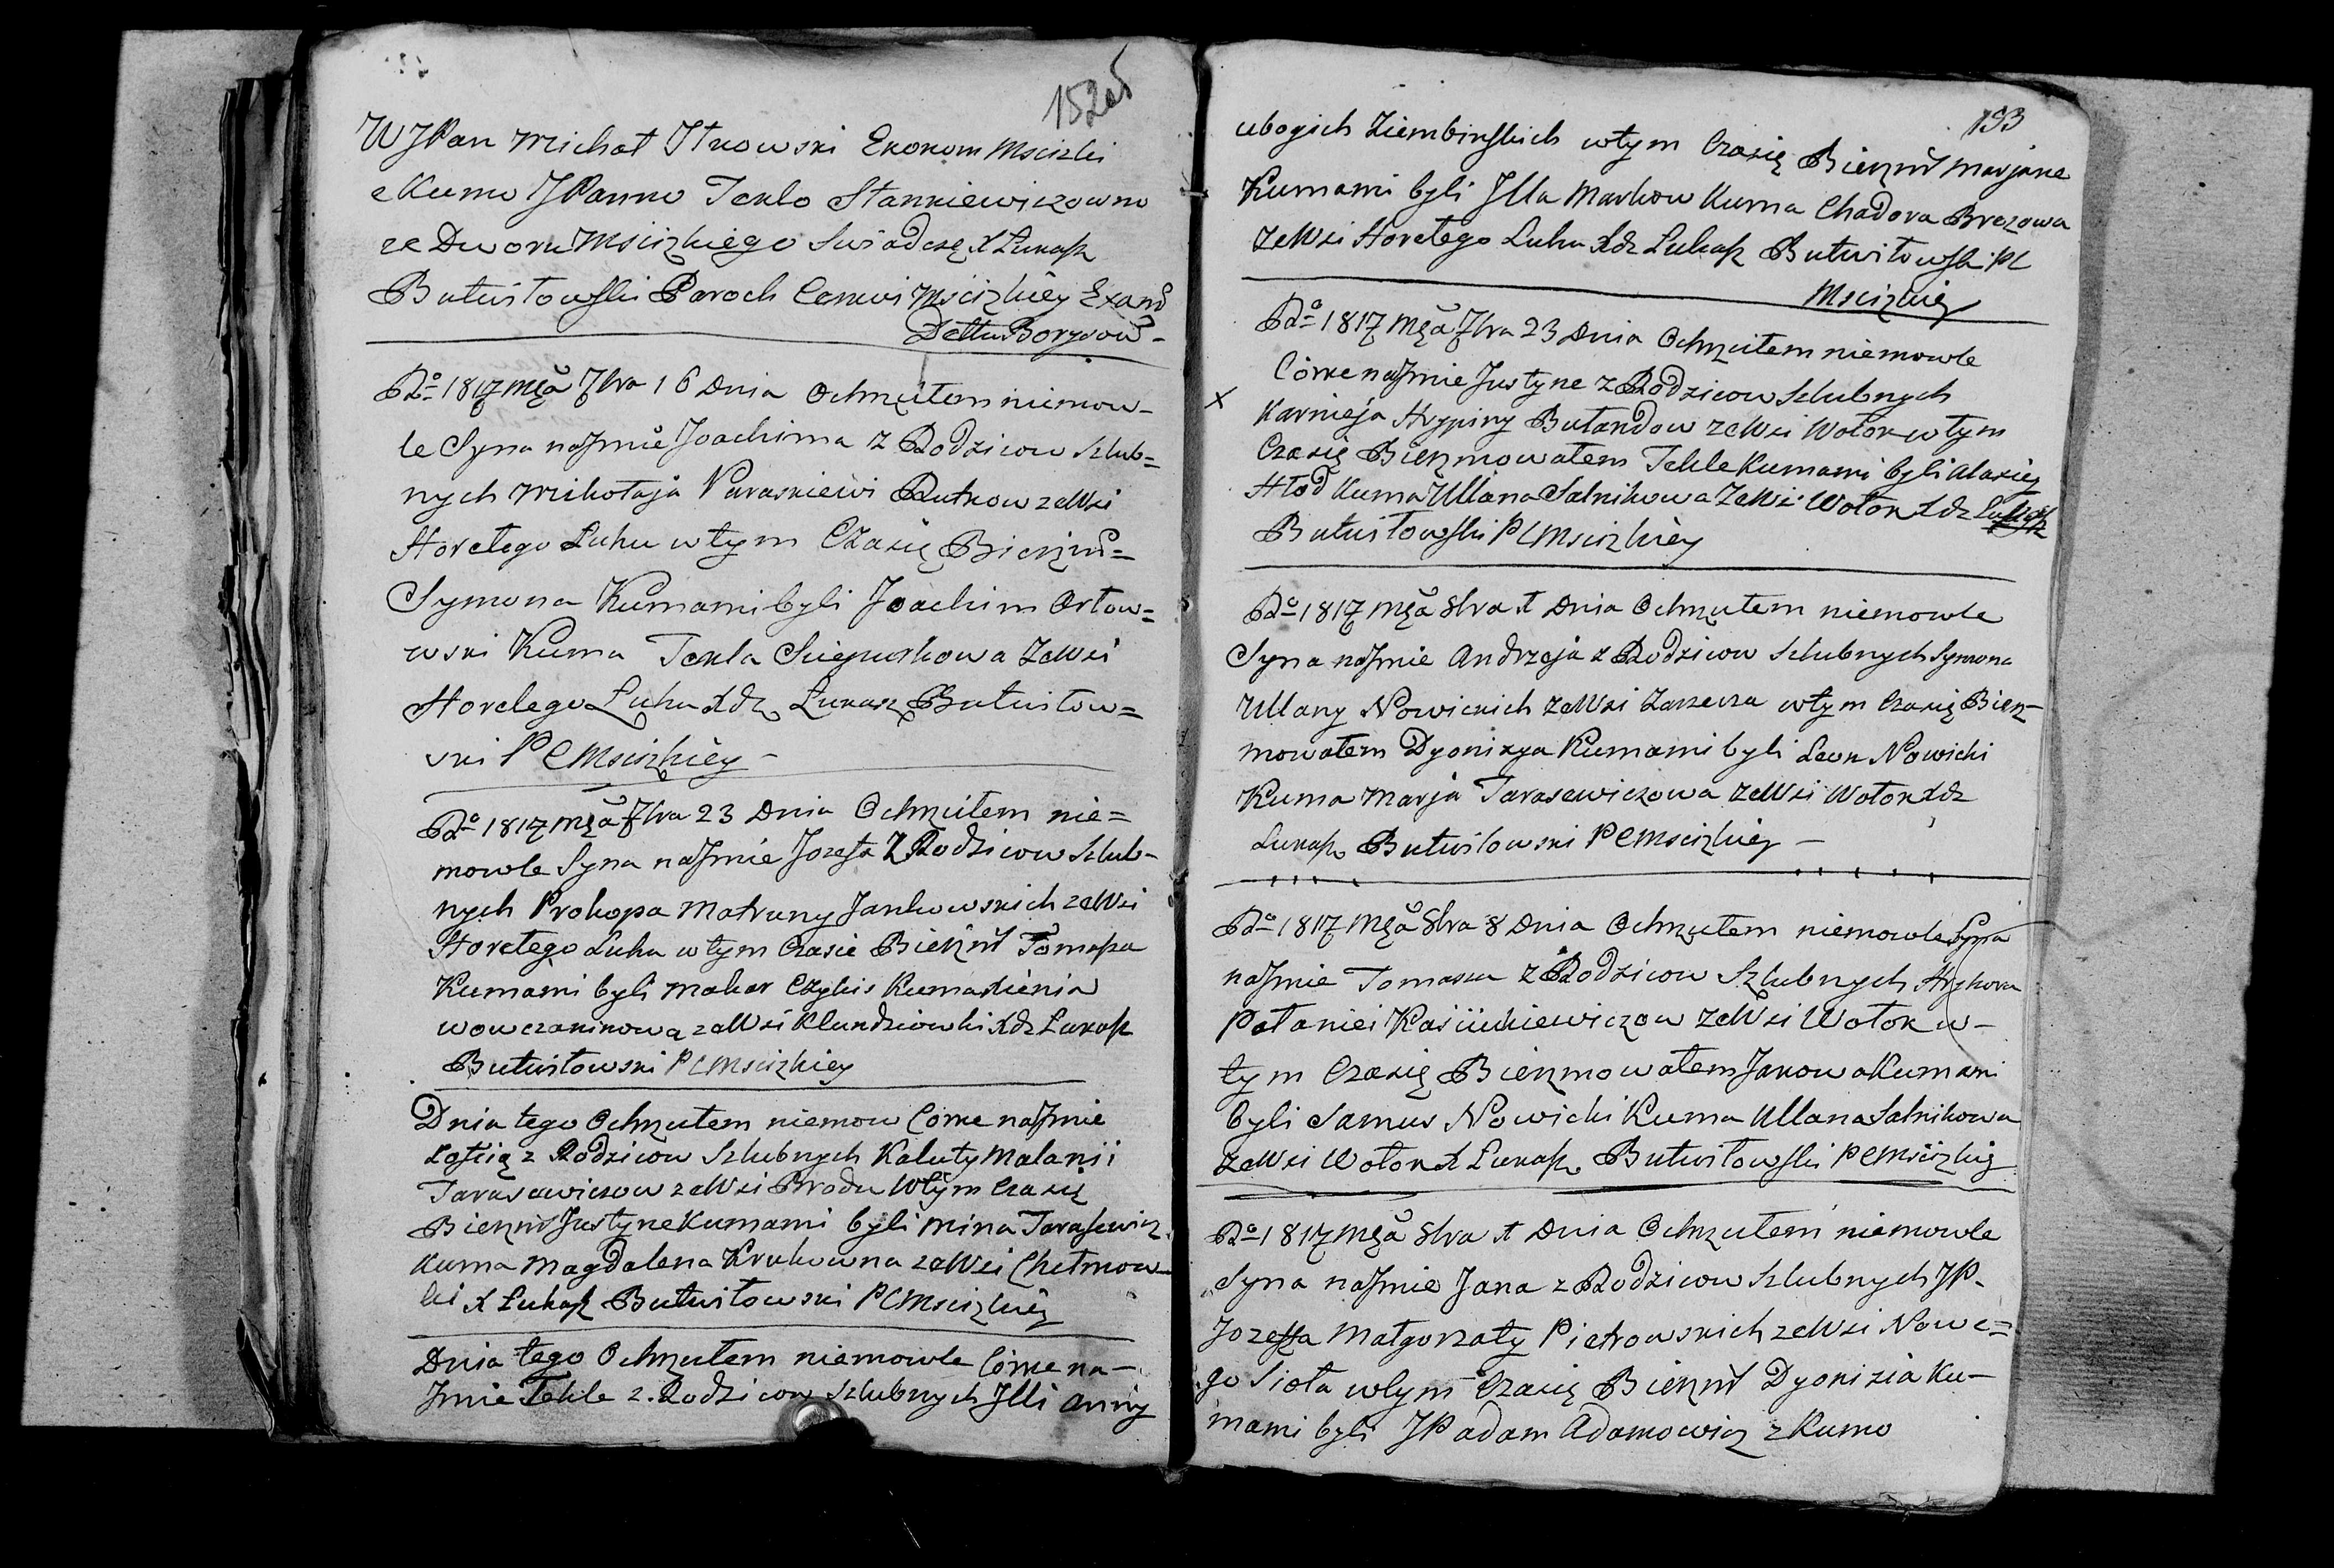 152 об
WJPan Michał Itkowski Ekonom Mscizki
z Kumo JPanno Teklo Stankiewiczowno
ze Dworu Mscizkiego Swiadczę X Łukasz
Butwiłowski Paroch Cerkwi Mscizkiey Exam
Dettu Borysow-
Ro 1817 Mca 7bra 16 Dnia Ochrzciłem niemow-
le Syna na Jmie Joachima z Rodzicow Szlub=
nych Mikołaja Paraskiewi Rutkow ze Wsi
Horełego Łuhu w tym Czasie Bierzm=
Symona Kumami byli Joachim Orłow=
wski Kuma Tekla Sciepurkowa ze Wsi
Horełego Łuhu Xdz Łukasz Butwiłow=
ski P C Mscizkiey -
Ro 1817 Mca 7bra 23 Dnia Ochrzciłem nie=
mowle Syna na Jmie Jozefa z Rodzicow Szlub-
nych Prokopa Matruny Jankowskich ze Wsi
Horełego Łuhu w tym Czasie Bierzm Tomasza
Kumami byli Makar Czykis Kuma Xienia
Wowczaninowa ze Wsi Klundziowki Xdz Łukasz
Butwiłowski P C Mscizkiey
Dnia tego Ochrzciłem niemow Corke na Jmie
Zofiią z Rodzicow Szlubnych Kaluty Malanii
Tarasewiczow ze Wsi Brodu w tym Czasie
Bierzm Justyne Kumami byli Mina Tarasewicz
Kuma Magdalena Krukowna ze Wsi Chełmow-
ki X Łukasz Butwiłowski P C Mscizkiey
Dnia tego Ochrzciłem niemowle Corke na-
Jmie Tekle z Rodzicow Szlubnych Jlli Anny
153
ubogich Ziembinskich w tym Czasie Bierzm Marjane
Kumami byli Jlla Markow Kuma Chadora Brozowa
ze Wsi Horełego Łuhu Xdz Łukasz Butwiłowski PC
Mscizkiey
Ro 1817 Mca 7bra 23 Dnia Ochrzciłem niemowle
x Corke na Jmie Justyne z Rodzicow Szlubnych
Karnieja Hrypiny Butandow ze Wsi Wołok w tym
Czasie Bierzmowałem Tekle Kumami byli Alaxiey
Hłod Kuma Ullana Salnikowa ze Wsi Wołok Xdz Łukasz
Butwiłowski P C Mscizkiey
Ro 1817 Mca 8bra 1 Dnia Ochrzciłem niemowle
Syna na Jmie Andrzeja z Rodzicow Szlubnych Symona
Ullany Nowickich ze Wsi Zarzecza w tym Czasie Bierz-
mowałem Dyonizya Kumami byli Leon Nowicki
Kuma Marja Tarasewiczowa ze Wsi Wołok Xdz
Łukasz Butwiłowski P C Mscizkiey -
Ro 1817 Mca 8bra 8 Dnia Ochrzciłem niemowle Syna
na Jmie Tomasza z Rodzicow Szlubnych Hryhora
Połaniei Kasiukiewiczow ze Wsi Wołok w-
tym Czasie Bierzmowałem Jakowa Kumami
byli Samus Nowicki Kuma Ullana Salnikowa
ze Wsi Wołok X Łukasz Butwiłowski P C Mscizkiey
Ro 1817 Mca 8bra 1 Dnia Ochrzciłem niemowle
Syna na Jmie Jana z Rodzicow Szlubnych JP-
Jozeffa Małgorzaty Pietrowskich ze Wsi Nowe=
go Sioła w tym Czasie Bierzm Dyonizia Ku-
mami byli JP Adam Adamowicz z Kumo